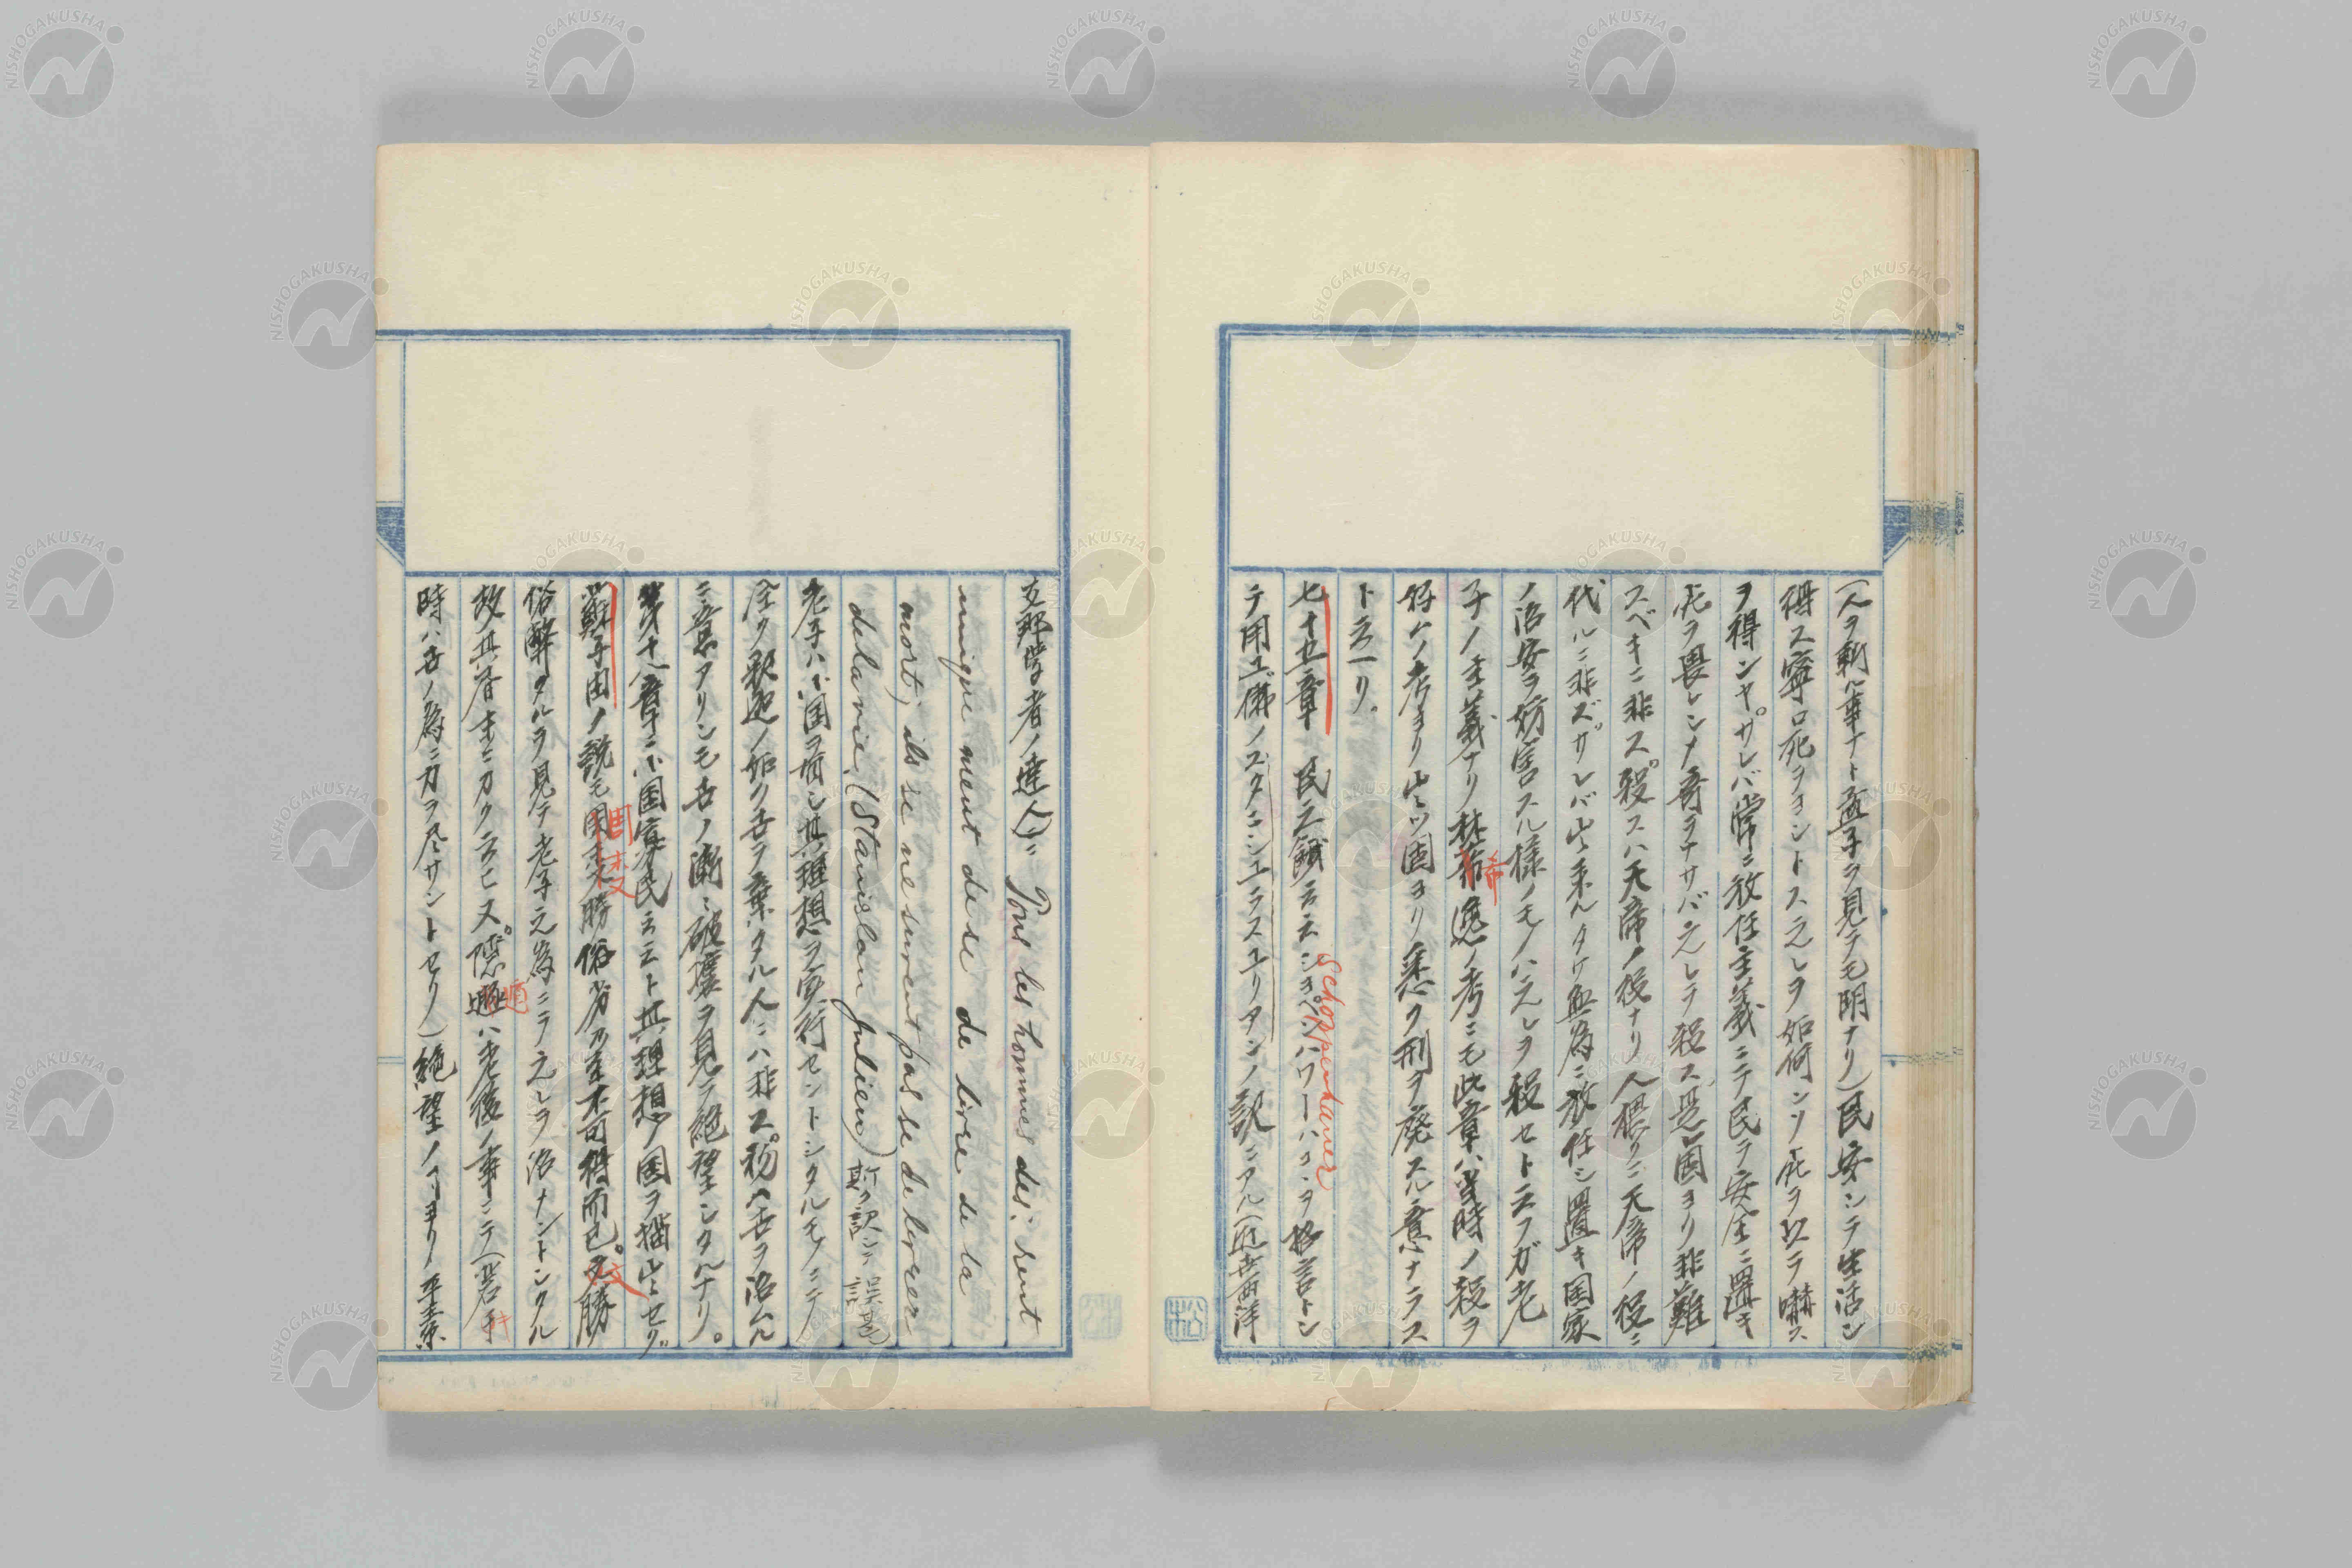 (人ヲ斬ル事ナト孟子ヲ見テモ明ナリ)民安シテ生活シ
得ス寧ロ死ヲヨシトス之レヲ如何ンソ死ヲ以テ嚇ス
ヲ得ンヤ。サレバ常ニ放任主義ニテ民ヲ安住ニ置キ
死ヲ畏レシメ奇ヲナサバ之レヲ殺ス是レ固ヨリ非難
スベキニ非ス。殺スハ天帝ノ役ナリ人猥リニ天帝ノ役ニ
代ルニ非ズサレバ出来ルタケ無為ニ放任シ置キ国家
ノ治安ヲ妨害スル様ノモノハ之レヲ殺セト云フガ老
子ノ主義ナリ林希逸ノ考ニモ此章ハ当時ノ殺ヲ
好ムノ考ヨリ出ツ固ヨリ悉ク刑ヲ廃スル意ナラス
ト云ヘリ。
七十五章 民之饑云云ショペンハワーハコヽヲ格言トシ
Schoppenhauer
テ用ユ佛ノスタニシユラスユリアンノ訳ニアル(近世西洋
支那学者ノ達人)ニ Pour les hommes des: rent
uniquement de se de livre de la
mort; ils se ne surent pas se de livrer
de la vie. (Stanislau Julien) 斯ク訳シテ誤ル
老子ハ小国ヲ有シ其理想ヲ実行セントシタルモノニテ
全ク釈迦ノ如ク古ヲ棄タル人ニハ非ス。初ハ古ヲ治ムル
ニ意アリシモ古ノ漸ニ破壊ヲ見テ絶望シタルナリ。
第十八章ニ小国寡民云云ト其理想ノ国ヲ描出セリ
蘇子由ノ説モ周末文勝俗劣乃至不可得而已。文勝
周末 文
俗弊タルヲ見テ老子之為ニテ之レヲ治ナントシタル
故其全書ニカク云ヒ又。隠遁ハ老後ノ事ニテ(若キ
時ハ古ノ為ニ力ヲ尽サントセリ)絶望ノコヨリノ平素